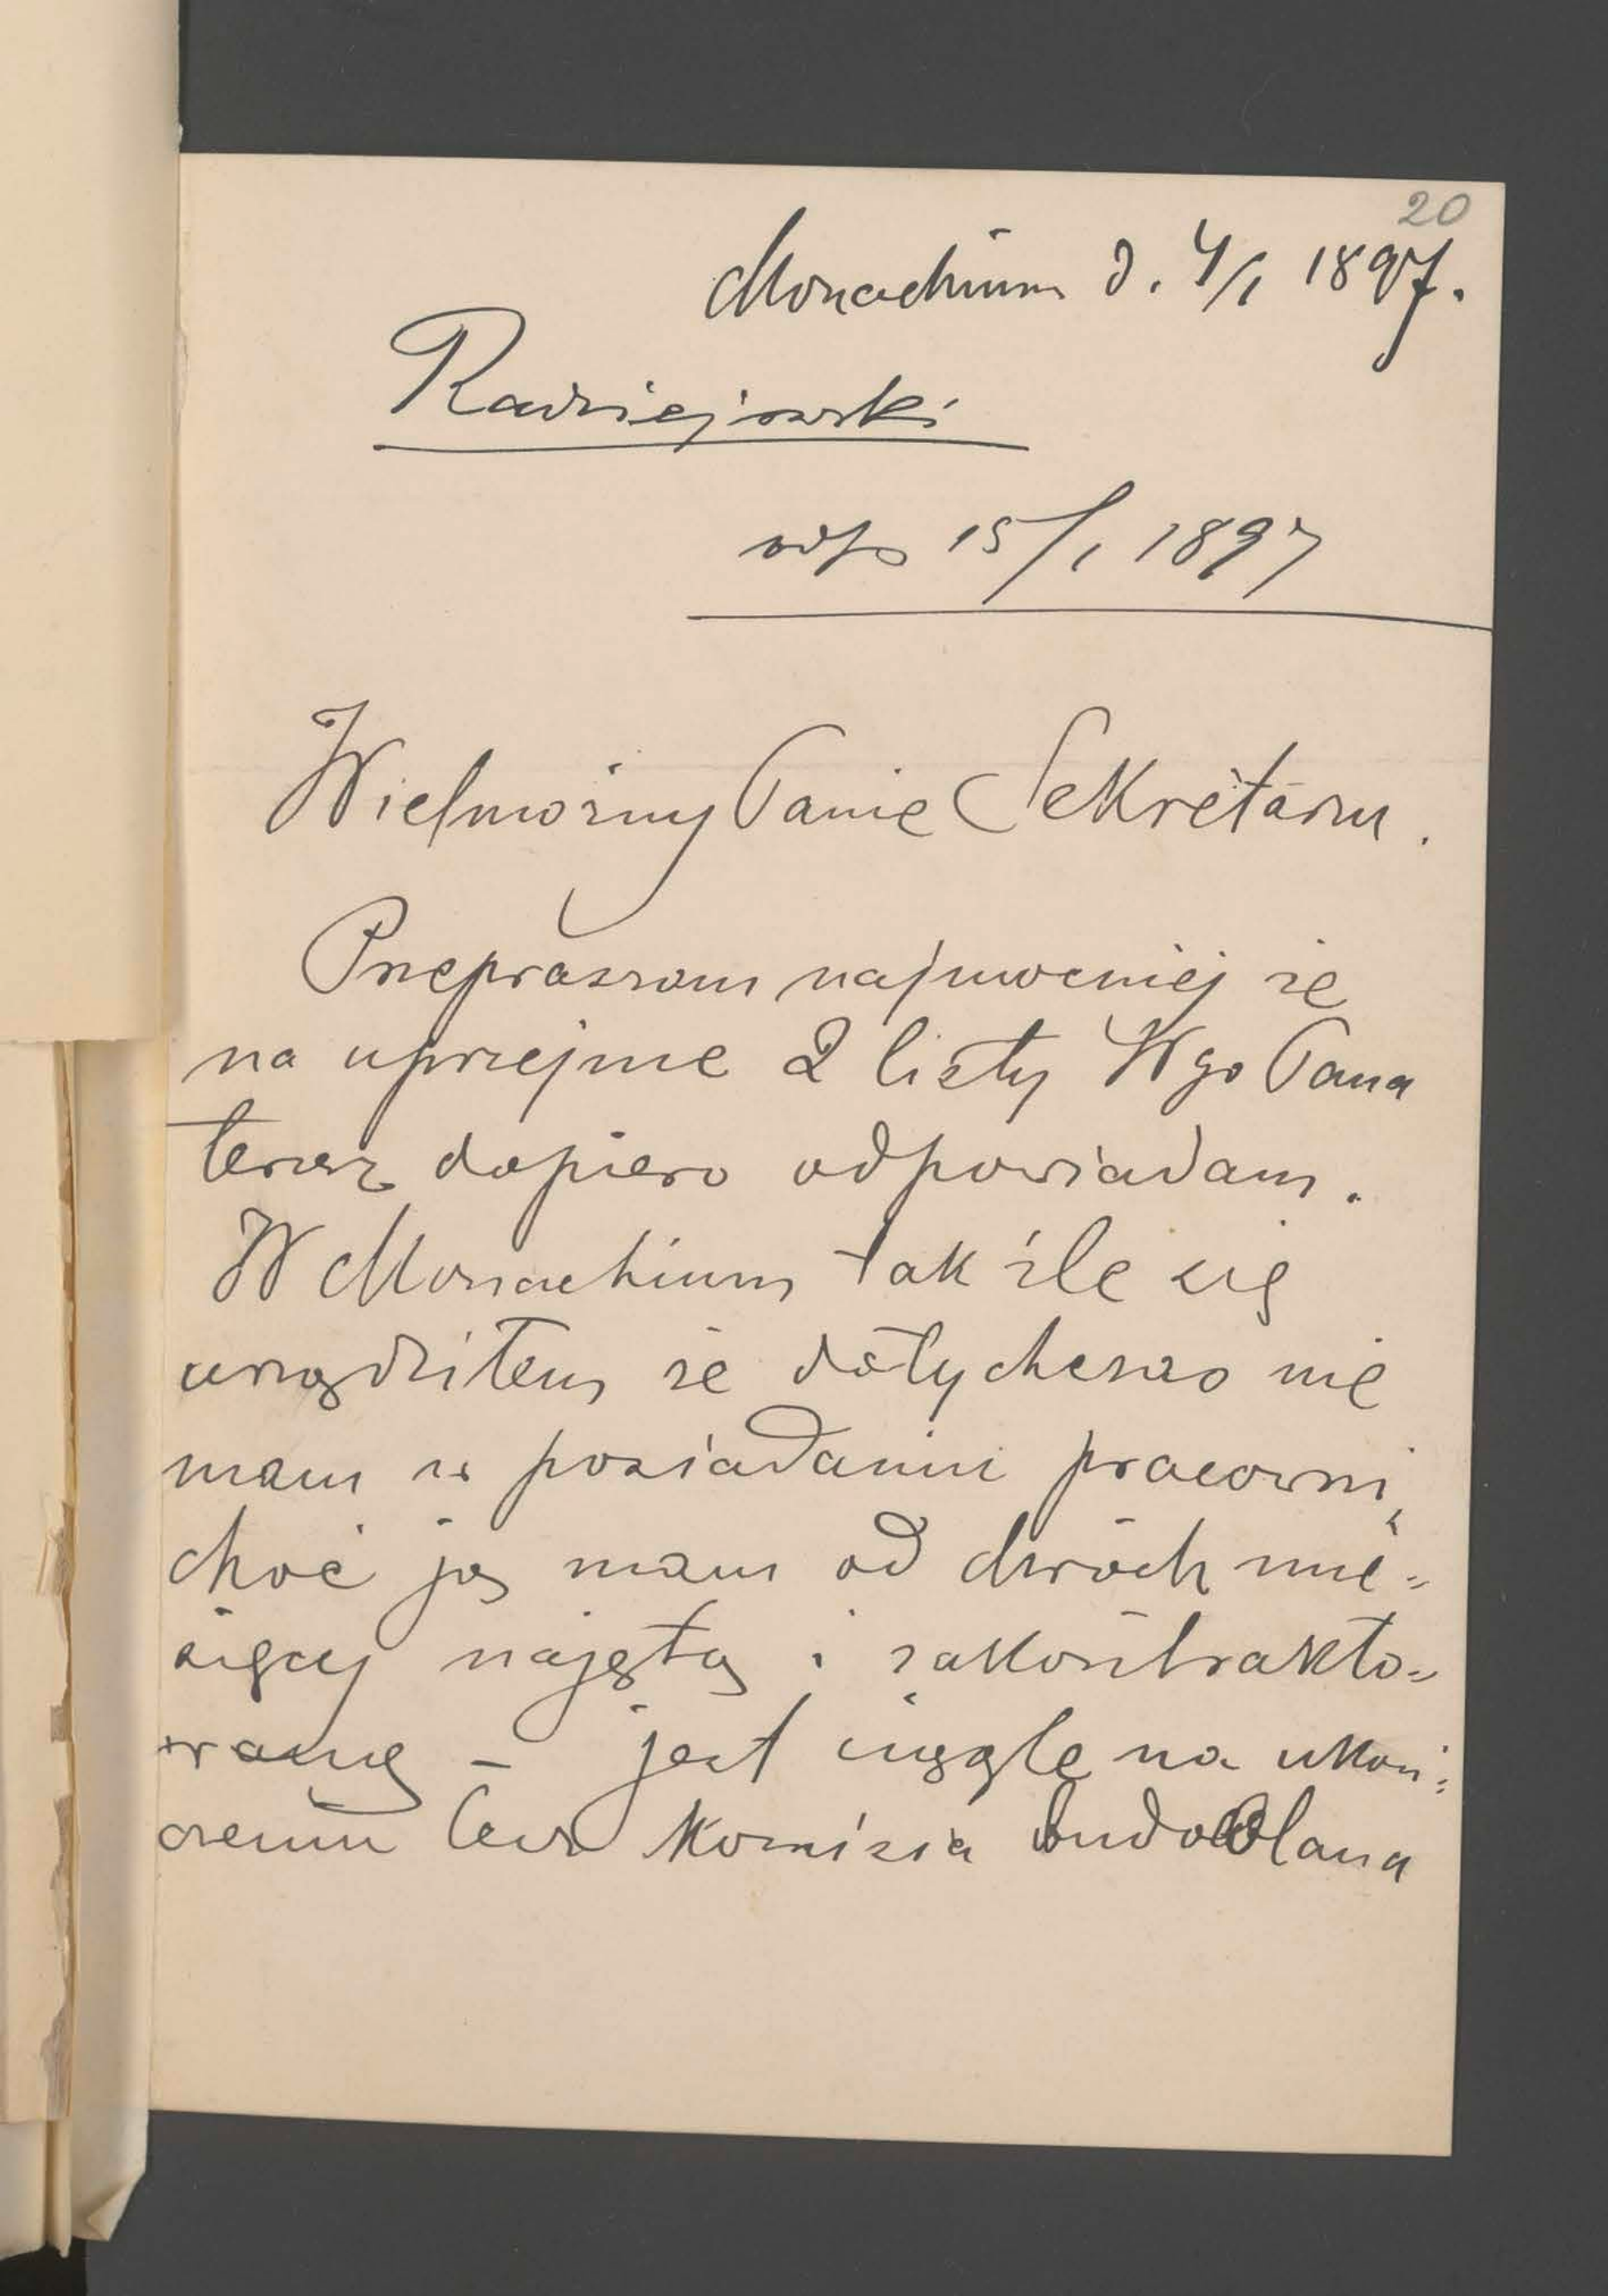 20
Monachium d. 4/1 1897.
Radziejowski
odp 15/1 1897
Wielmożny Panie Sekretarzu.
Przepraszam najmocniej że
na uprzejme 2 listy Wgo Pana
teraz dopiero odpowiadam.
W Monachium tak źle się
urządziłem że dotychczas nie
mam w posiadaniu pracowni,
choć ją mam od dwóch mie=
sięcy najętą i zakontrakto=
waną – jest ciągle na ukoń=
czeniu lecz Komisia budowlana